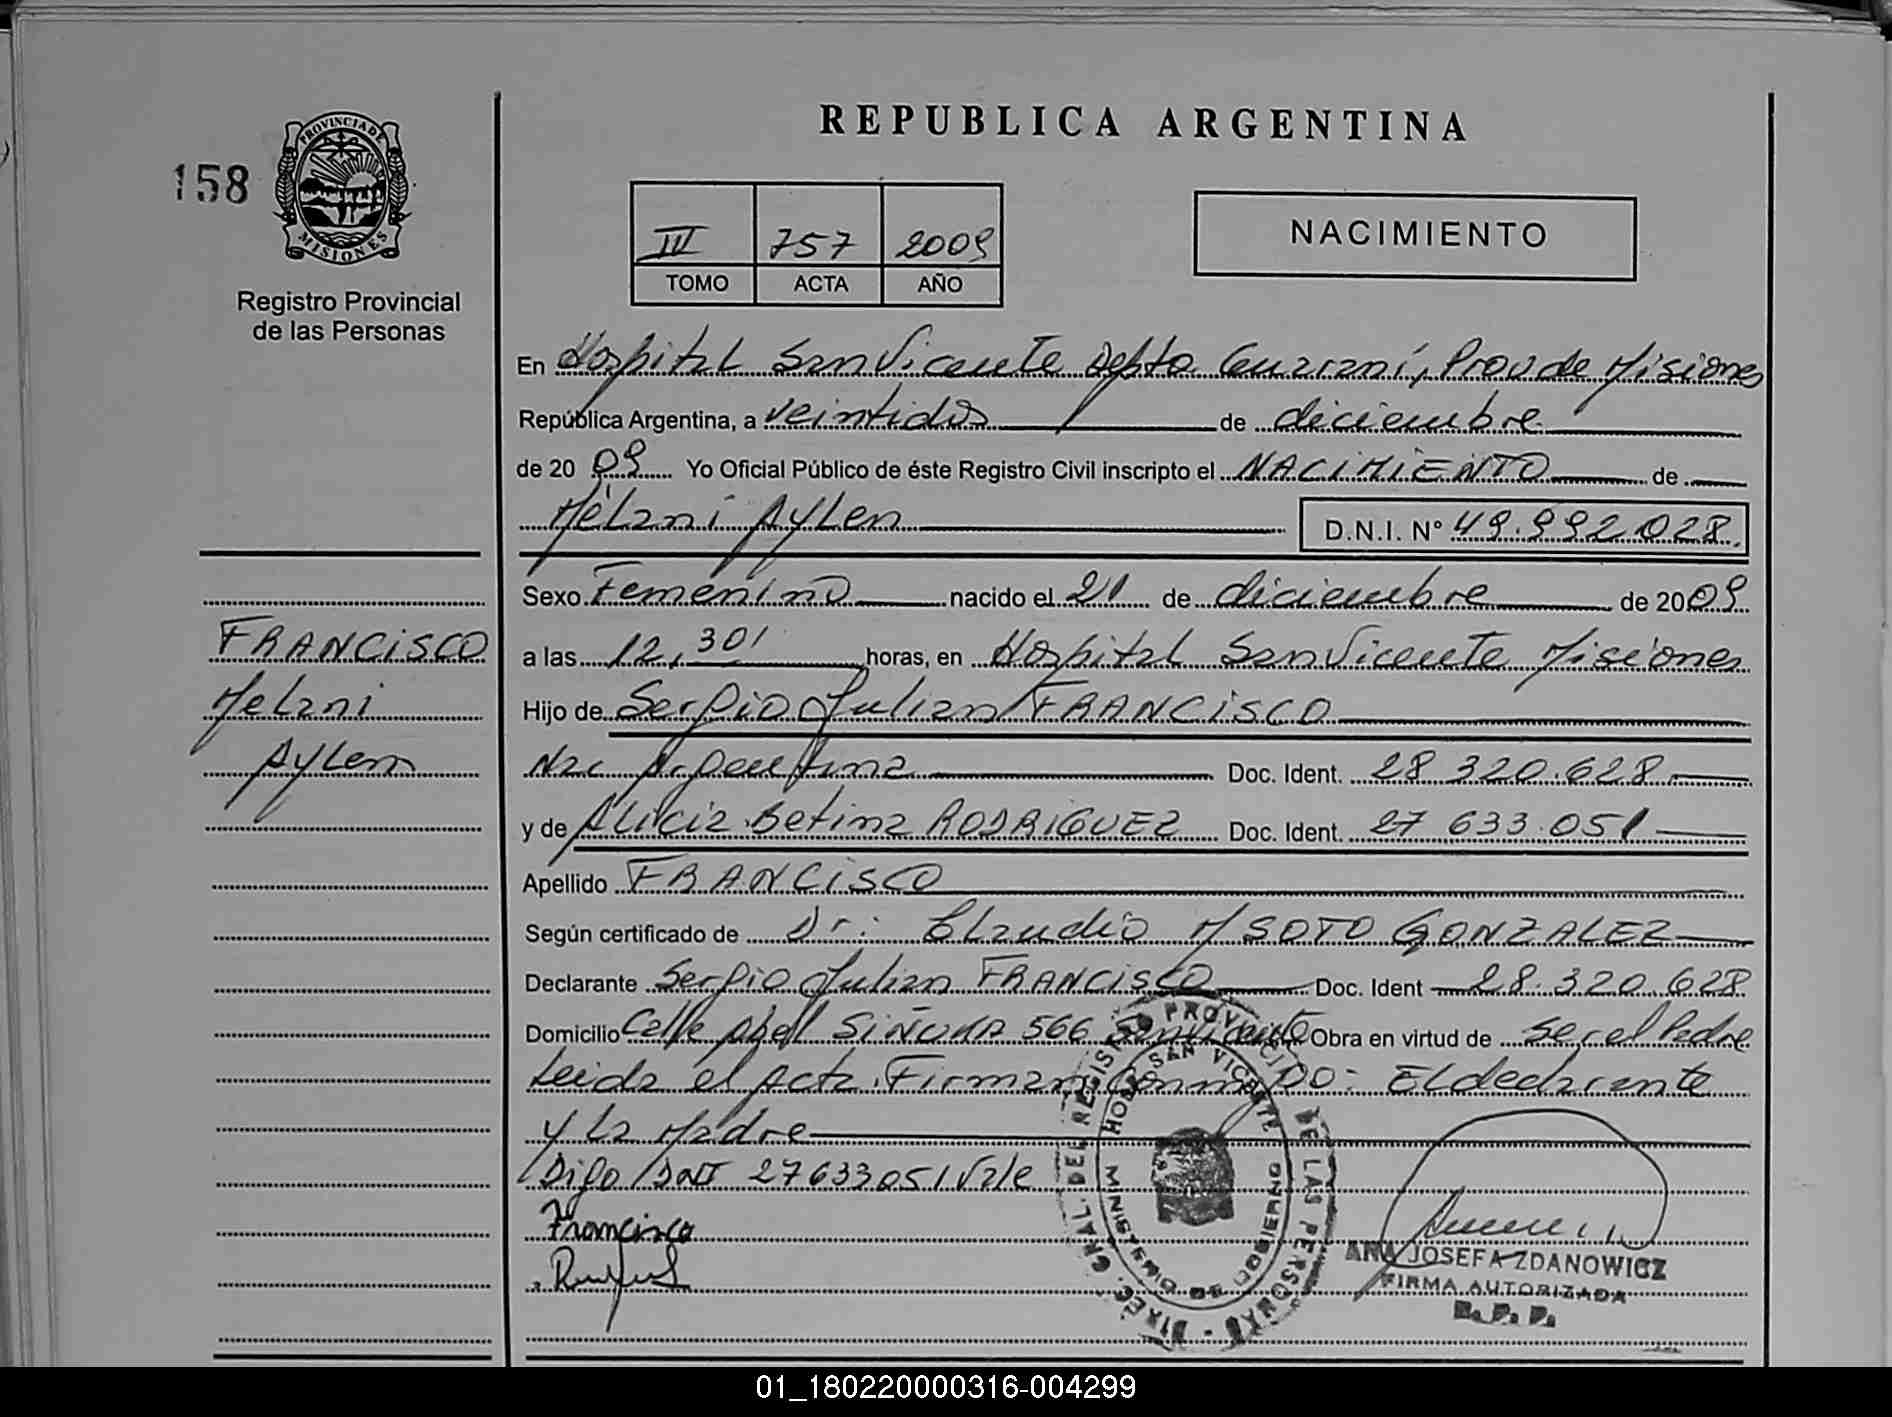 REPUBLICA ARGENTINA
158
PROVINCIA DE
MISIONES
Registro Provincial
de las Personas
IV 757 2009
TOMO ACTA AÑO
NACIMIENTO
En Hospital San Vicente Depto Guaraní, Prov de Misiones
República Argentina, a veintidos de diciembre
de 20 09 Yo Oficial Público de éste Registro Civil inscripto el NACIMIENTO de
Mélani Aylen D.N.I. N° 49.992.028.
Sexo Femenino nacido el 21 de diciembre de 2009
a las 12,30' horas, en Hospital San Vicente Misiones
Hijo de Sergio Julian FRANCISCO
Nac Argentina Doc. Ident. 28 320.628
y de Alicia Betina RODRIGUEZ Doc. Ident. 27 633.051
Apellido FRANCISCO
Según certificado de Dr: Claudio M SOTO GONZALEZ
Declarante Sergio Julian FRANCISCO Doc. Ident 28.320.628
Domicilio Calle Abel 566 San Vicente Obra en virtud de Ser el Padre
Leida el Acta. Firman Conmigo: El declarante
y La Madre
Digo DNI 27633051 Vale
Francisco
FRANCISCO
Melani
Aylen
DIREC. GRAL. DEL REGISTRO PROVINCIAL DE LAS PERSONAS
HOSP. SAN VICENTE
MINISTERIO DE GOBIERNO
ANA JOSEFA ZDANOWICZ
FIRMA AUTORIZADA
R. P. P.
01_180220000316-004299